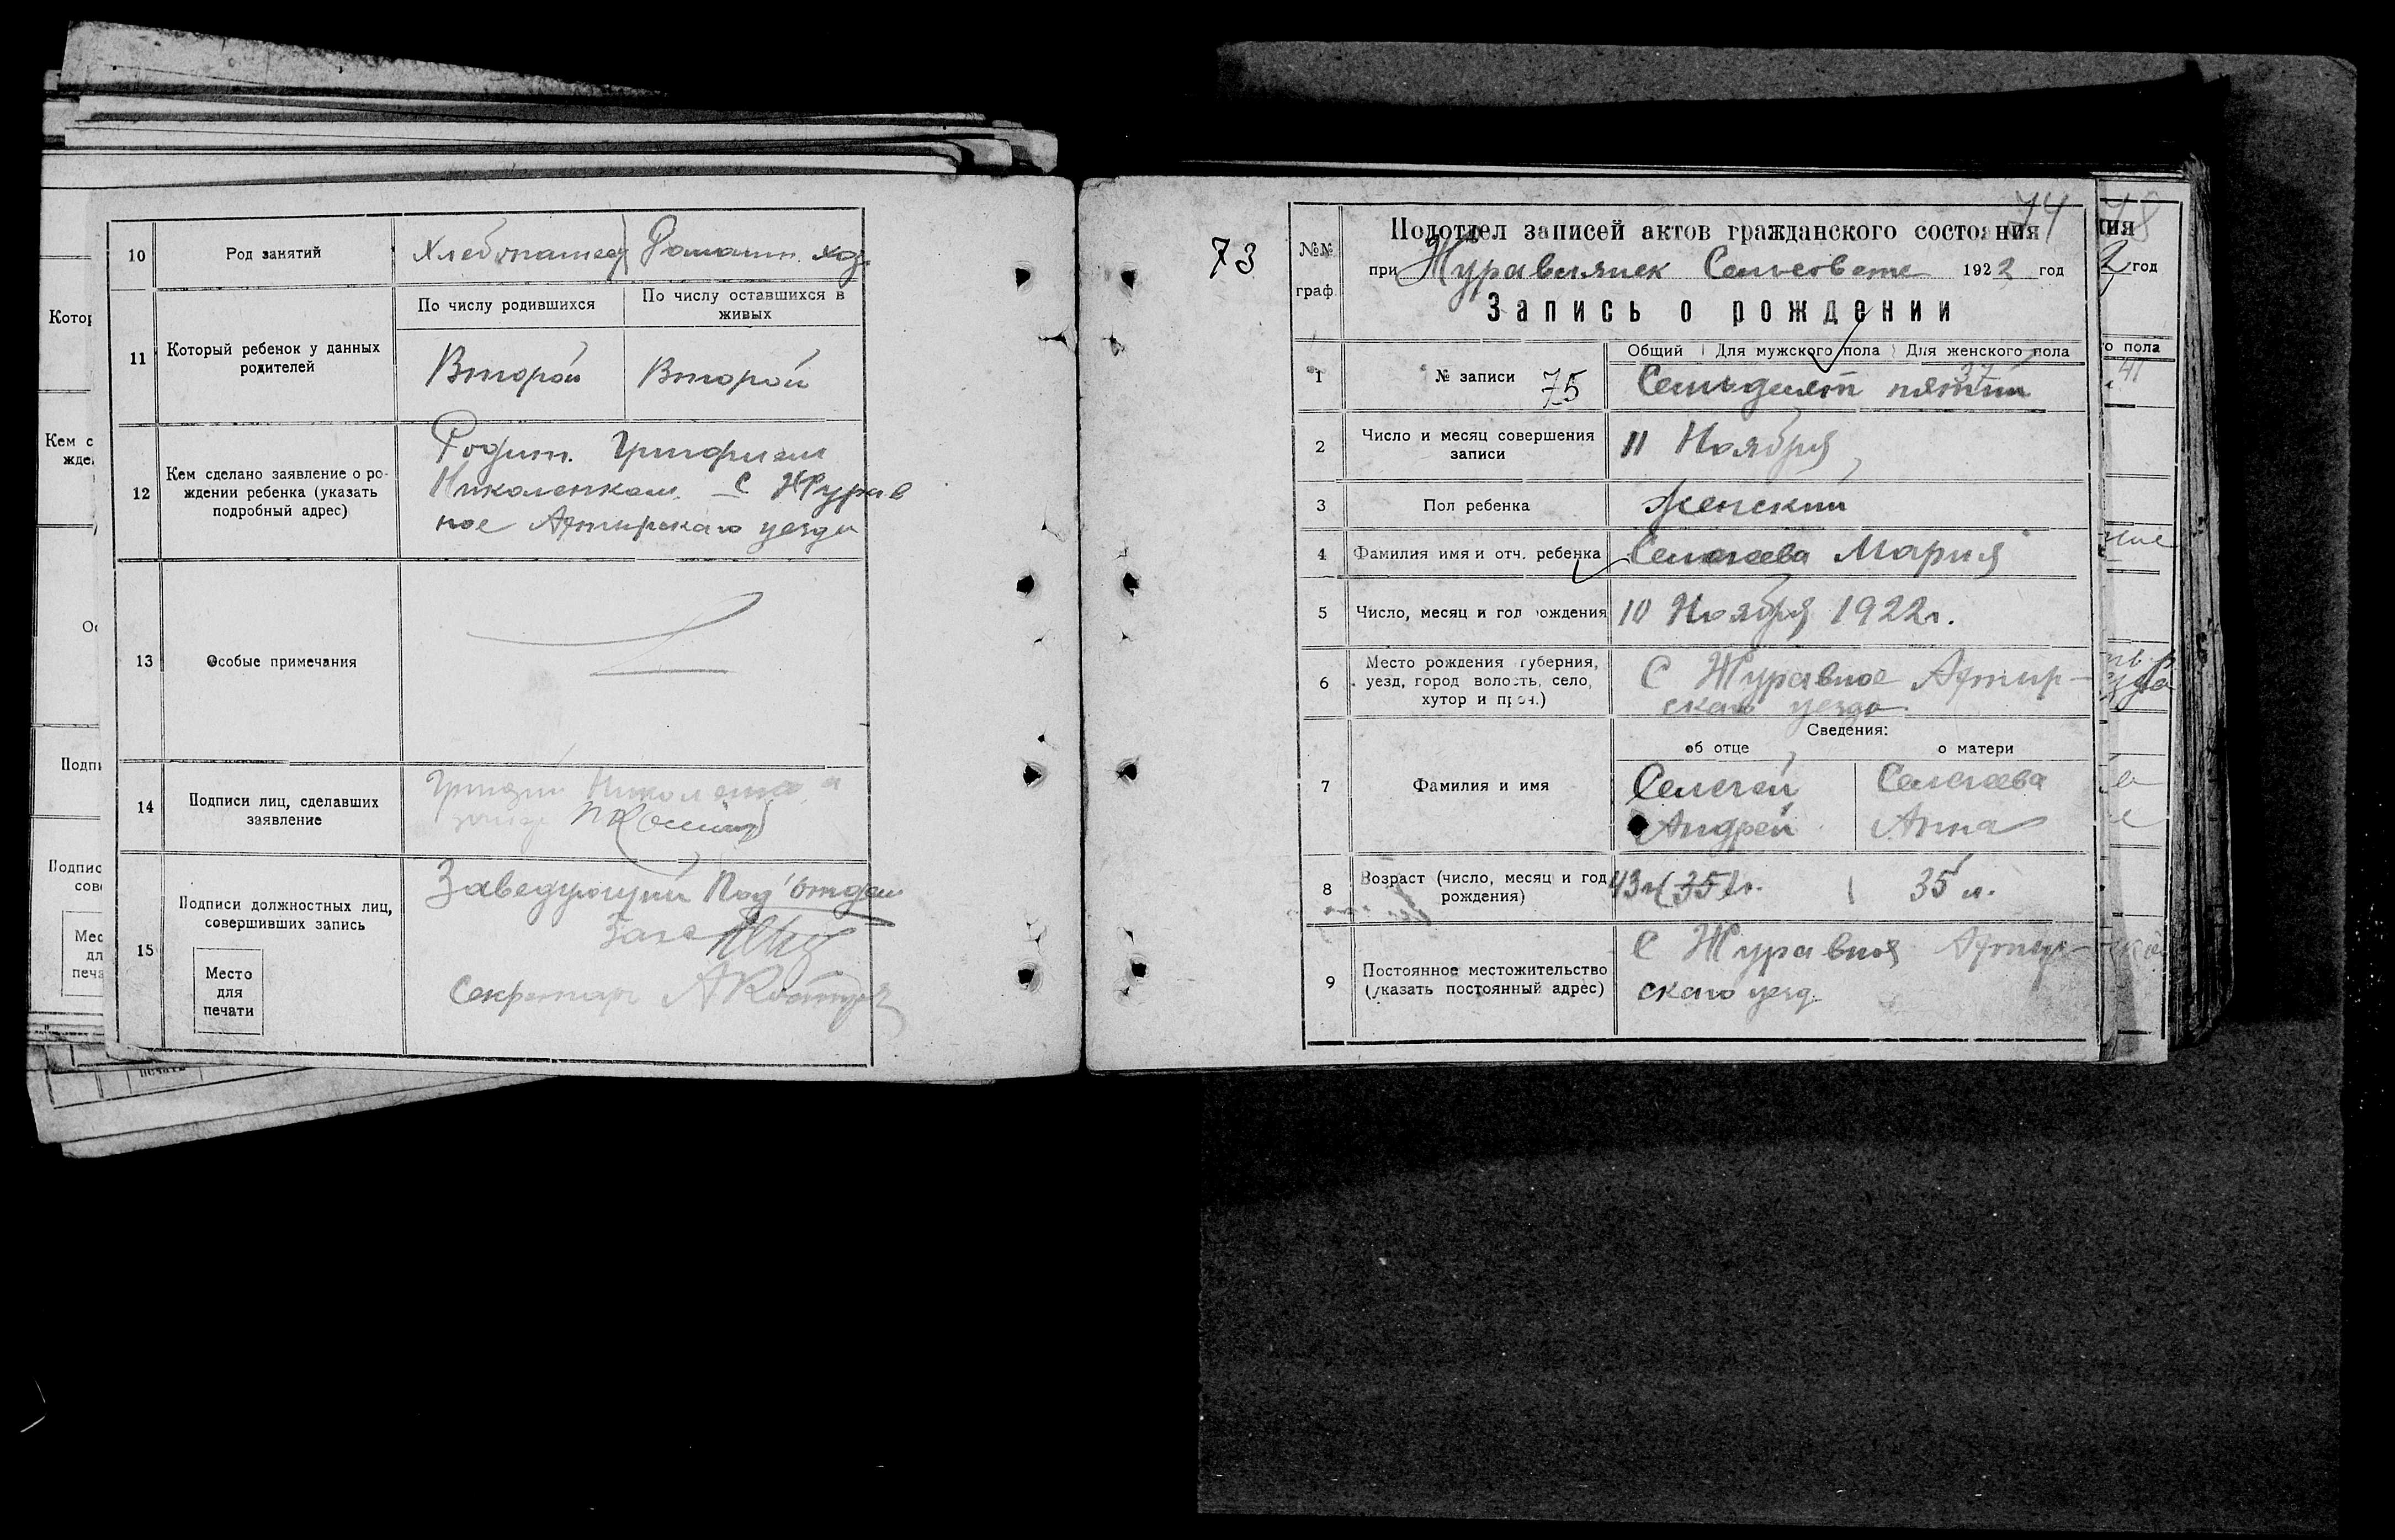 10 Род занятий Хлебопашец Домашн. хоз.
11 Который ребенок у данных родителей
По числу родившихся
По числу оставшихся в живых
Второй Второй
12 Кем сделано заявление о ро-
ждении ребенка (указать
подробный адрес)
Родит. Григорием
Николенком. С Журав
ное Ахтирскаго уезда
13 Особые примечания
14 Подписи лиц, сделавших
заявление
Григорий Николенко а
15 Подписи должностных лиц,
совершивших запись
Место
для
печати
Заведующий Под'отдел
Загс
Секретарь
Кем с
жде
Подпи
Подпис
сов
Мес
дл
печа
73
74
№№
граф.
Подотдел записей актов гражданского состояния
при Журавлянск Сельсовете 1922 год
Запись о рождении
1 № записи 75
Общий Для мужского пола Для женского пола
Семьдесят пятий 37
2 Число и месяц совершения
записи
11 Ноября
3 Пол ребенка Женский
4 Фамилия имя и отч. ребенка Селегеева Мария
5 Число, месяц и год рождения 10 Ноября 1922г.
6 Место рождения губерния,
уезд, город волость, село,
хутор и проч.)
С Журавное Ахтир-
скаго уезда
Сведения:
об отце о матери
7 Фамилия и имя
Селегей Селегеева
Андрей Анна
8 Возраст (число, месяц и год
рождения)
43 г (35) г. 35 л.
9 Постоянное местожительство
(указать постоянный адрес)
С Журавноя Ахтир-
скаго уезд.
ия
2 год
го пола
41